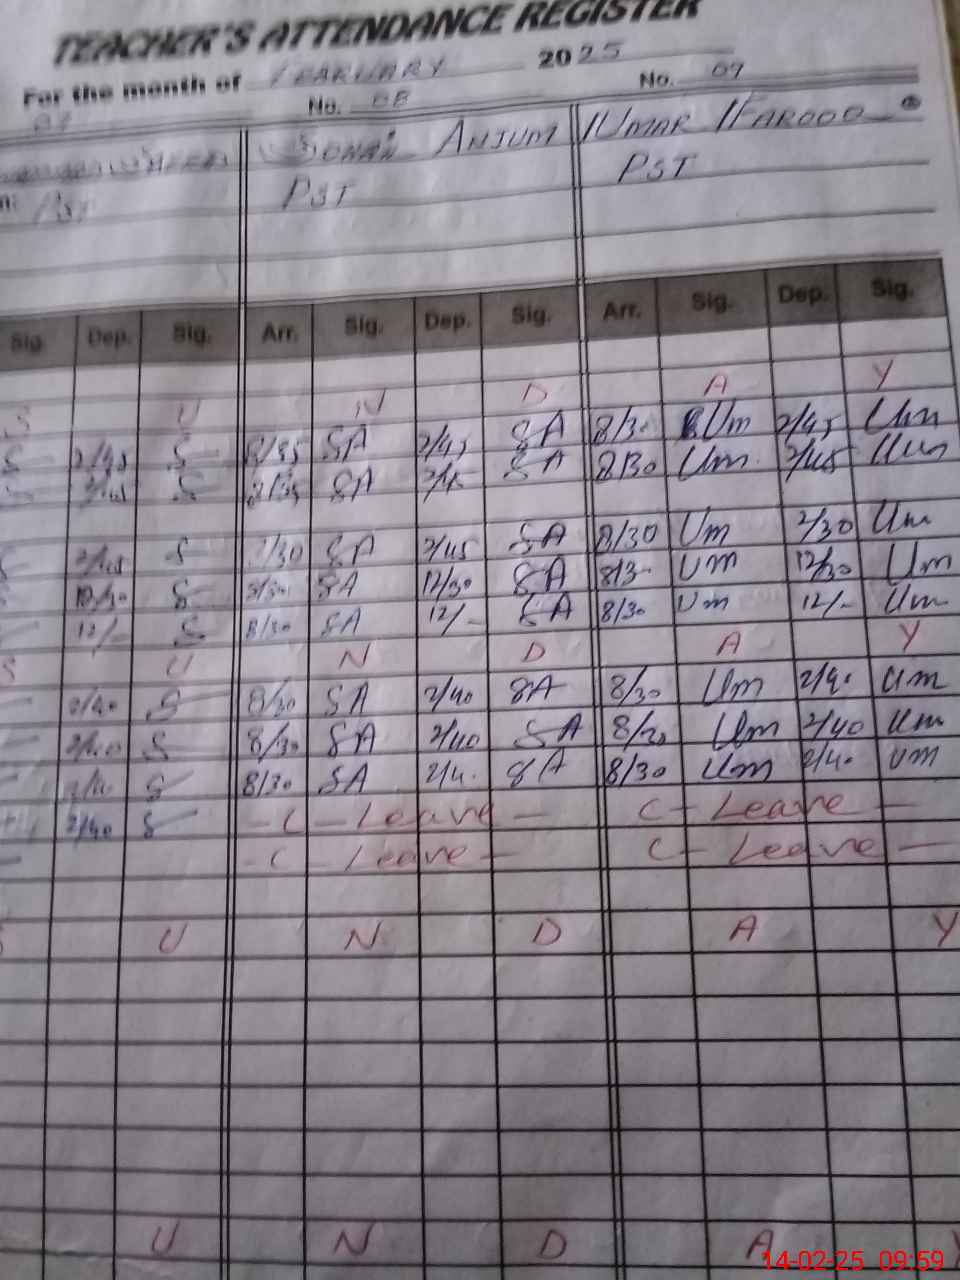 TEACHER'S ATTENDANCE REGISTER
For the month of FEBRUARY 2025
No. 08 No. 09
ANJUM UMAR FAROOQ
PST PST PST
Sig. Dep. Sig. Arr. Sig. Dep. Sig. Arr. Sig. Dep. Sig.
S U N D A Y
S 2/45 S 8/35 SA 2/45 SA 8/30 Um 2/45 Um
S 2/45 S SA SA 8/30 Um 2/45 Um
2/45 S SA 2/45 SA 8/30 Um 2/30 Um
12/30 S SA 12/30 SA 8/30 Um 12/30 Um
12/- S 8/30 SA 12/- SA 8/30 Um 12/- Um
S U N D A Y
2/40 S 8/30 SA 2/40 SA 8/30 Um 2/40 Um
2/40 S 8/30 SA 2/40 SA 8/30 Um 2/40 Um
S 8/30 SA 2/40 SA 8/30 Um 2/40 Um
2/40 S - C - Leave - C - Leave -
- C - Leave - C - Leave -
S U N D A Y
U N D A Y
14-02-25 09:59